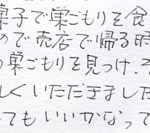 菓子で巣ごもりを食
ので売店で帰る時
の巣ごもりを見つけ、
しくいただきました
てもいいかなって